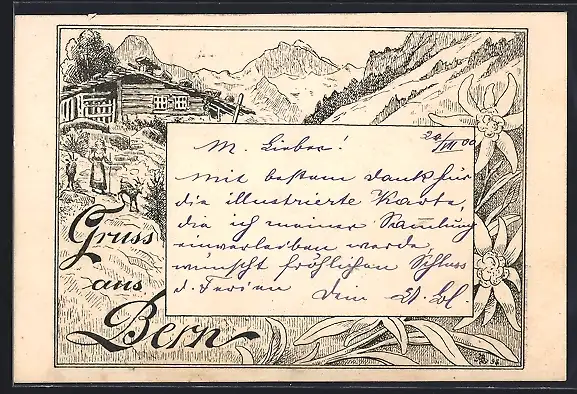 M. Lieber!
20/VII 00
Mit bestem Dank für
die illustrierte Karte,
die ich meiner Sammlung
einverleiben werde,
wünscht fröhlichen Schluss
d. Ferien Dein
Gruss
aus
Bern